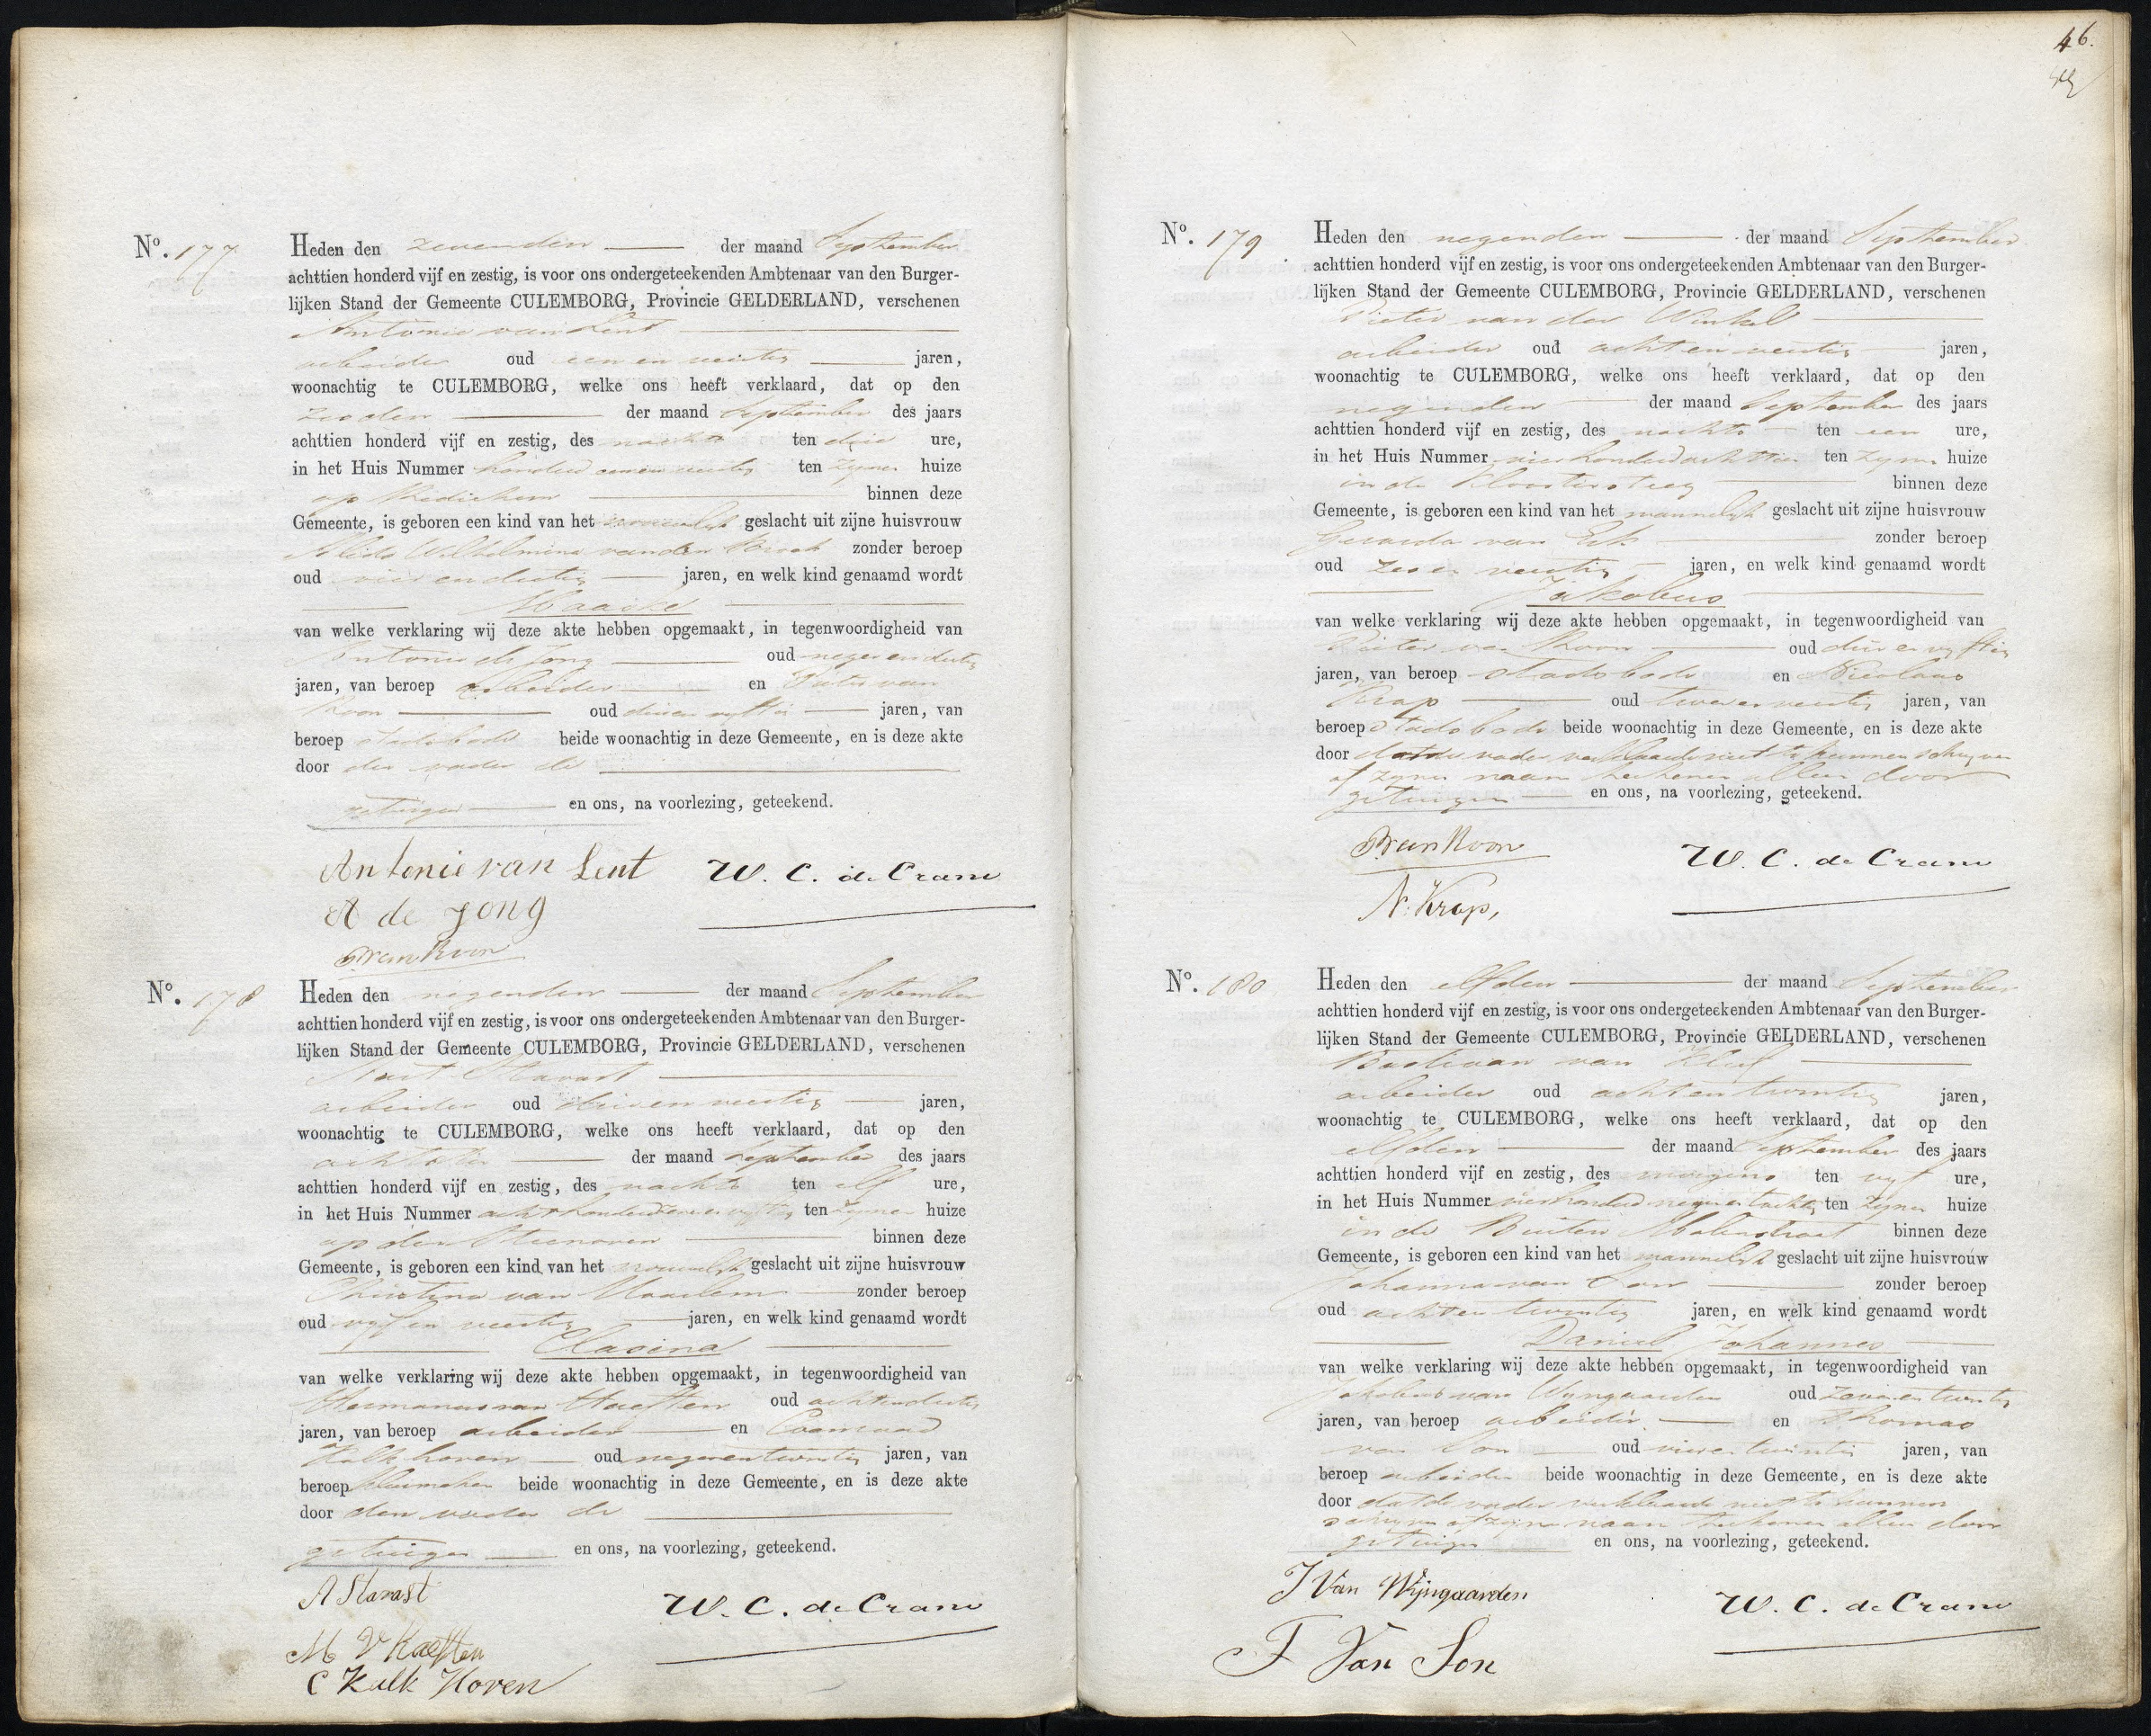 No. 177
Heden den zevenden der maand September
achttien honderd vijf en zestig, is voor ons ondergeteekenden Ambtenaar van den Burger-
lijken Stand der Gemeente CULEMBORG, Provincie GELDERLAND, verschenen
Antonie van Lent
arbeider oud een en veertig jaren,
woonachtig te CULEMBORG, welke ons heeft verklaard, dat op den
zesden der maand September des jaars
achttien honderd vijf en zestig, des nachts ten drie ure,
in het Huis Nummer honderd ten zijnen huize
op binnen deze
Gemeente, is geboren een kind van het vrouwelijk geslacht uit zijne huisvrouw
Wilhelmina van den zonder beroep
oud vier en dertig jaren, en welk kind genaamd wordt
Maaike
van welke verklaring wij deze akte hebben opgemaakt, in tegenwoordigheid van
Antonie de Jong oud negen en dertig
jaren, van beroep arbeider en Pieter van
Koon oud drie en vijftig jaren, van
beroep stadsbode beide woonachtig in deze Gemeente, en is deze akte
door den vader de
getuigen en ons, na voorlezing, geteekend.
Antonie van Lent W. C. de Crane
A de Jong
P van Koon
No. 178
Heden den negenden der maand September
achttien honderd vijf en zestig, is voor ons ondergeteekenden Ambtenaar van den Burger-
lijken Stand der Gemeente CULEMBORG, Provincie GELDERLAND, verschenen
Stavast
arbeider oud drie en veertig jaren,
woonachtig te CULEMBORG, welke ons heeft verklaard, dat op den
achtsten der maand September des jaars
achttien honderd vijf en zestig, des nachts ten elf ure,
in het Huis Nummer achthonderd ten zijnen huize
op den Steenoven binnen deze
Gemeente, is geboren een kind van het vrouwelijk geslacht uit zijne huisvrouw
Christina van Haarlem zonder beroep
oud vijf en veertig jaren, en welk kind genaamd wordt
Clasina
van welke verklaring wij deze akte hebben opgemaakt, in tegenwoordigheid van
Hermanus van Haeften oud acht en dertig
jaren, van beroep arbeider en Coenraad
Kalkhoven oud negen en twintig jaren, van
beroep beide woonachtig in deze Gemeente, en is deze akte
door den vader de
getuigen en ons, na voorlezing, geteekend.
A Stavast W. C. de Crane
V Haeften
C Kalk Hoven
46.
No. 179
Heden den negenden der maand September
achttien honderd vijf en zestig, is voor ons ondergeteekenden Ambtenaar van den Burger-
lijken Stand der Gemeente CULEMBORG, Provincie GELDERLAND, verschenen
Pieter van der Winkel
arbeider oud acht en veertig jaren,
woonachtig te CULEMBORG, welke ons heeft verklaard, dat op den
negenden der maand September des jaars
achttien honderd vijf en zestig, des nachts ten een ure,
in het Huis Nummer vierhonderd achttien ten zijnen huize
in de Kloostersteeg binnen deze
Gemeente, is geboren een kind van het mannelijk geslacht uit zijne huisvrouw
Gerarda van Eck zonder beroep
oud zes en veertig jaren, en welk kind genaamd wordt
Jakobus
van welke verklaring wij deze akte hebben opgemaakt, in tegenwoordigheid van
Pieter van Koon oud drie en vijftig
jaren, van beroep stadsbode en Nicolaas
Krap oud twee en veertig jaren, van
beroep stadsbode beide woonachtig in deze Gemeente, en is deze akte
door dat de vader verklaarde niet te kunnen schrijven
of zijnen naam teekenen alleen door
getuigen en ons, na voorlezing, geteekend.
P van Koon W. C. de Crane
N. Krap,
No. 180
Heden den elfden der maand September
achttien honderd vijf en zestig, is voor ons ondergeteekenden Ambtenaar van den Burger-
lijken Stand der Gemeente CULEMBORG, Provincie GELDERLAND, verschenen
Bastiaan van Kleef
arbeider oud acht en twintig jaren,
woonachtig te CULEMBORG, welke ons heeft verklaard, dat op den
elfden der maand September des jaars
achttien honderd vijf en zestig, des morgens ten vijf ure,
in het Huis Nummer vierhonderd negen en tachtig ten zijnen huize
in de Buiten Molenstraat binnen deze
Gemeente, is geboren een kind van het mannelijk geslacht uit zijne huisvrouw
Johanna van zonder beroep
oud acht en twintig jaren, en welk kind genaamd wordt
Daniel Johannes
van welke verklaring wij deze akte hebben opgemaakt, in tegenwoordigheid van
Jakobus van Wijngaarden oud zeven en twintig
jaren, van beroep arbeider en Thomas
van Son oud vier en twintig jaren, van
beroep arbeider beide woonachtig in deze Gemeente, en is deze akte
door dat de vader verklaarde niet te kunnen
schrijven of zijnen naam teekenen alleen door
getuigen en ons, na voorlezing, geteekend.
J Van Wijngaarden W. C. de Crane
T Van Son